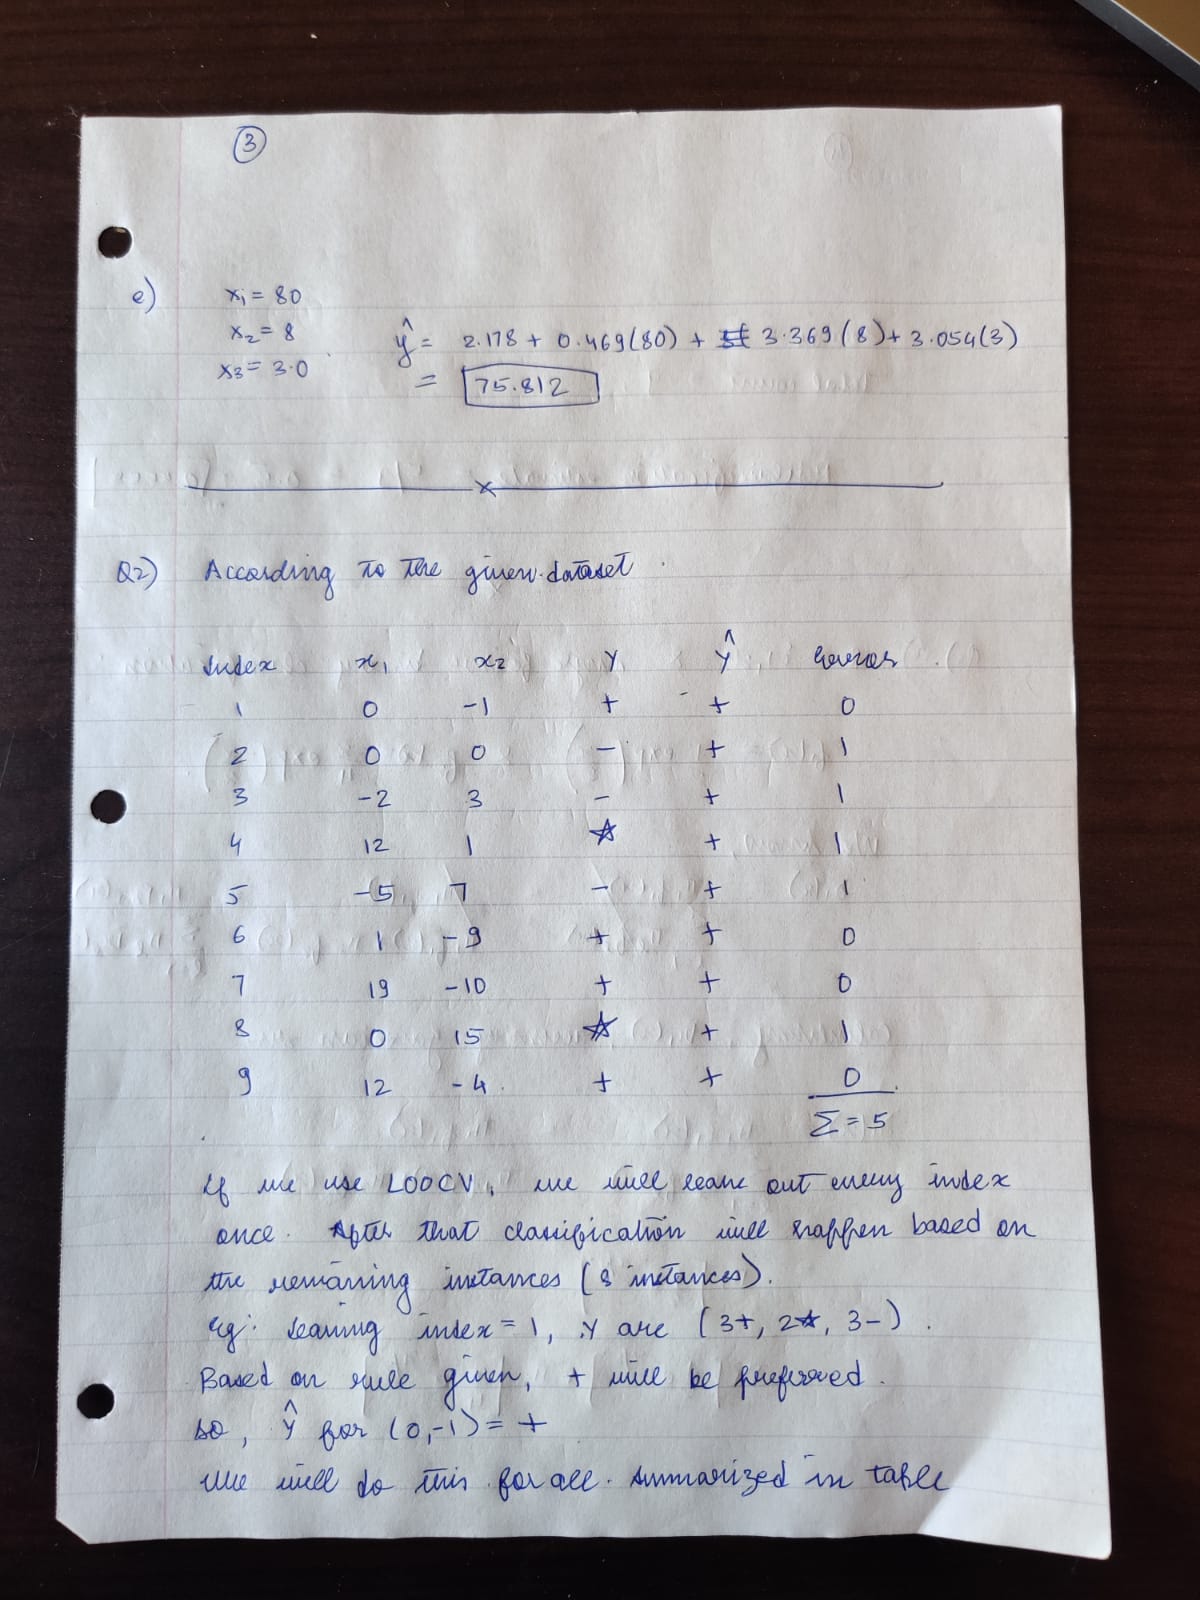 3
e) x1 = 80
x2 = 8
x3 = 3.0
ŷ = 2.178 + 0.469(80) + 3.369(8) + 3.054(3)
= 75.812
x
Q2) According to the given dataset.
Index x1 x2 Y Ŷ Error
1 0 -1 + + 0
2 0 0 - + 1
3 -2 3 - + 1
4 12 1 ☆ + 1
5 -5 7 - + 1
6 1 -9 + + 0
7 19 -10 + + 0
8 0 15 ☆ + 1
9 12 -4 + + 0
Σ = 5
If we use LOOCV, we will leave out every index
once. After that classification will happen based on
the remaining instances (8 instances).
eg: leaving index = 1, Y are (3+, 2☆, 3-).
Based on rule given, + will be preferred.
so, Ŷ for (0,-1) = +
We will do this for all. Summarized in table